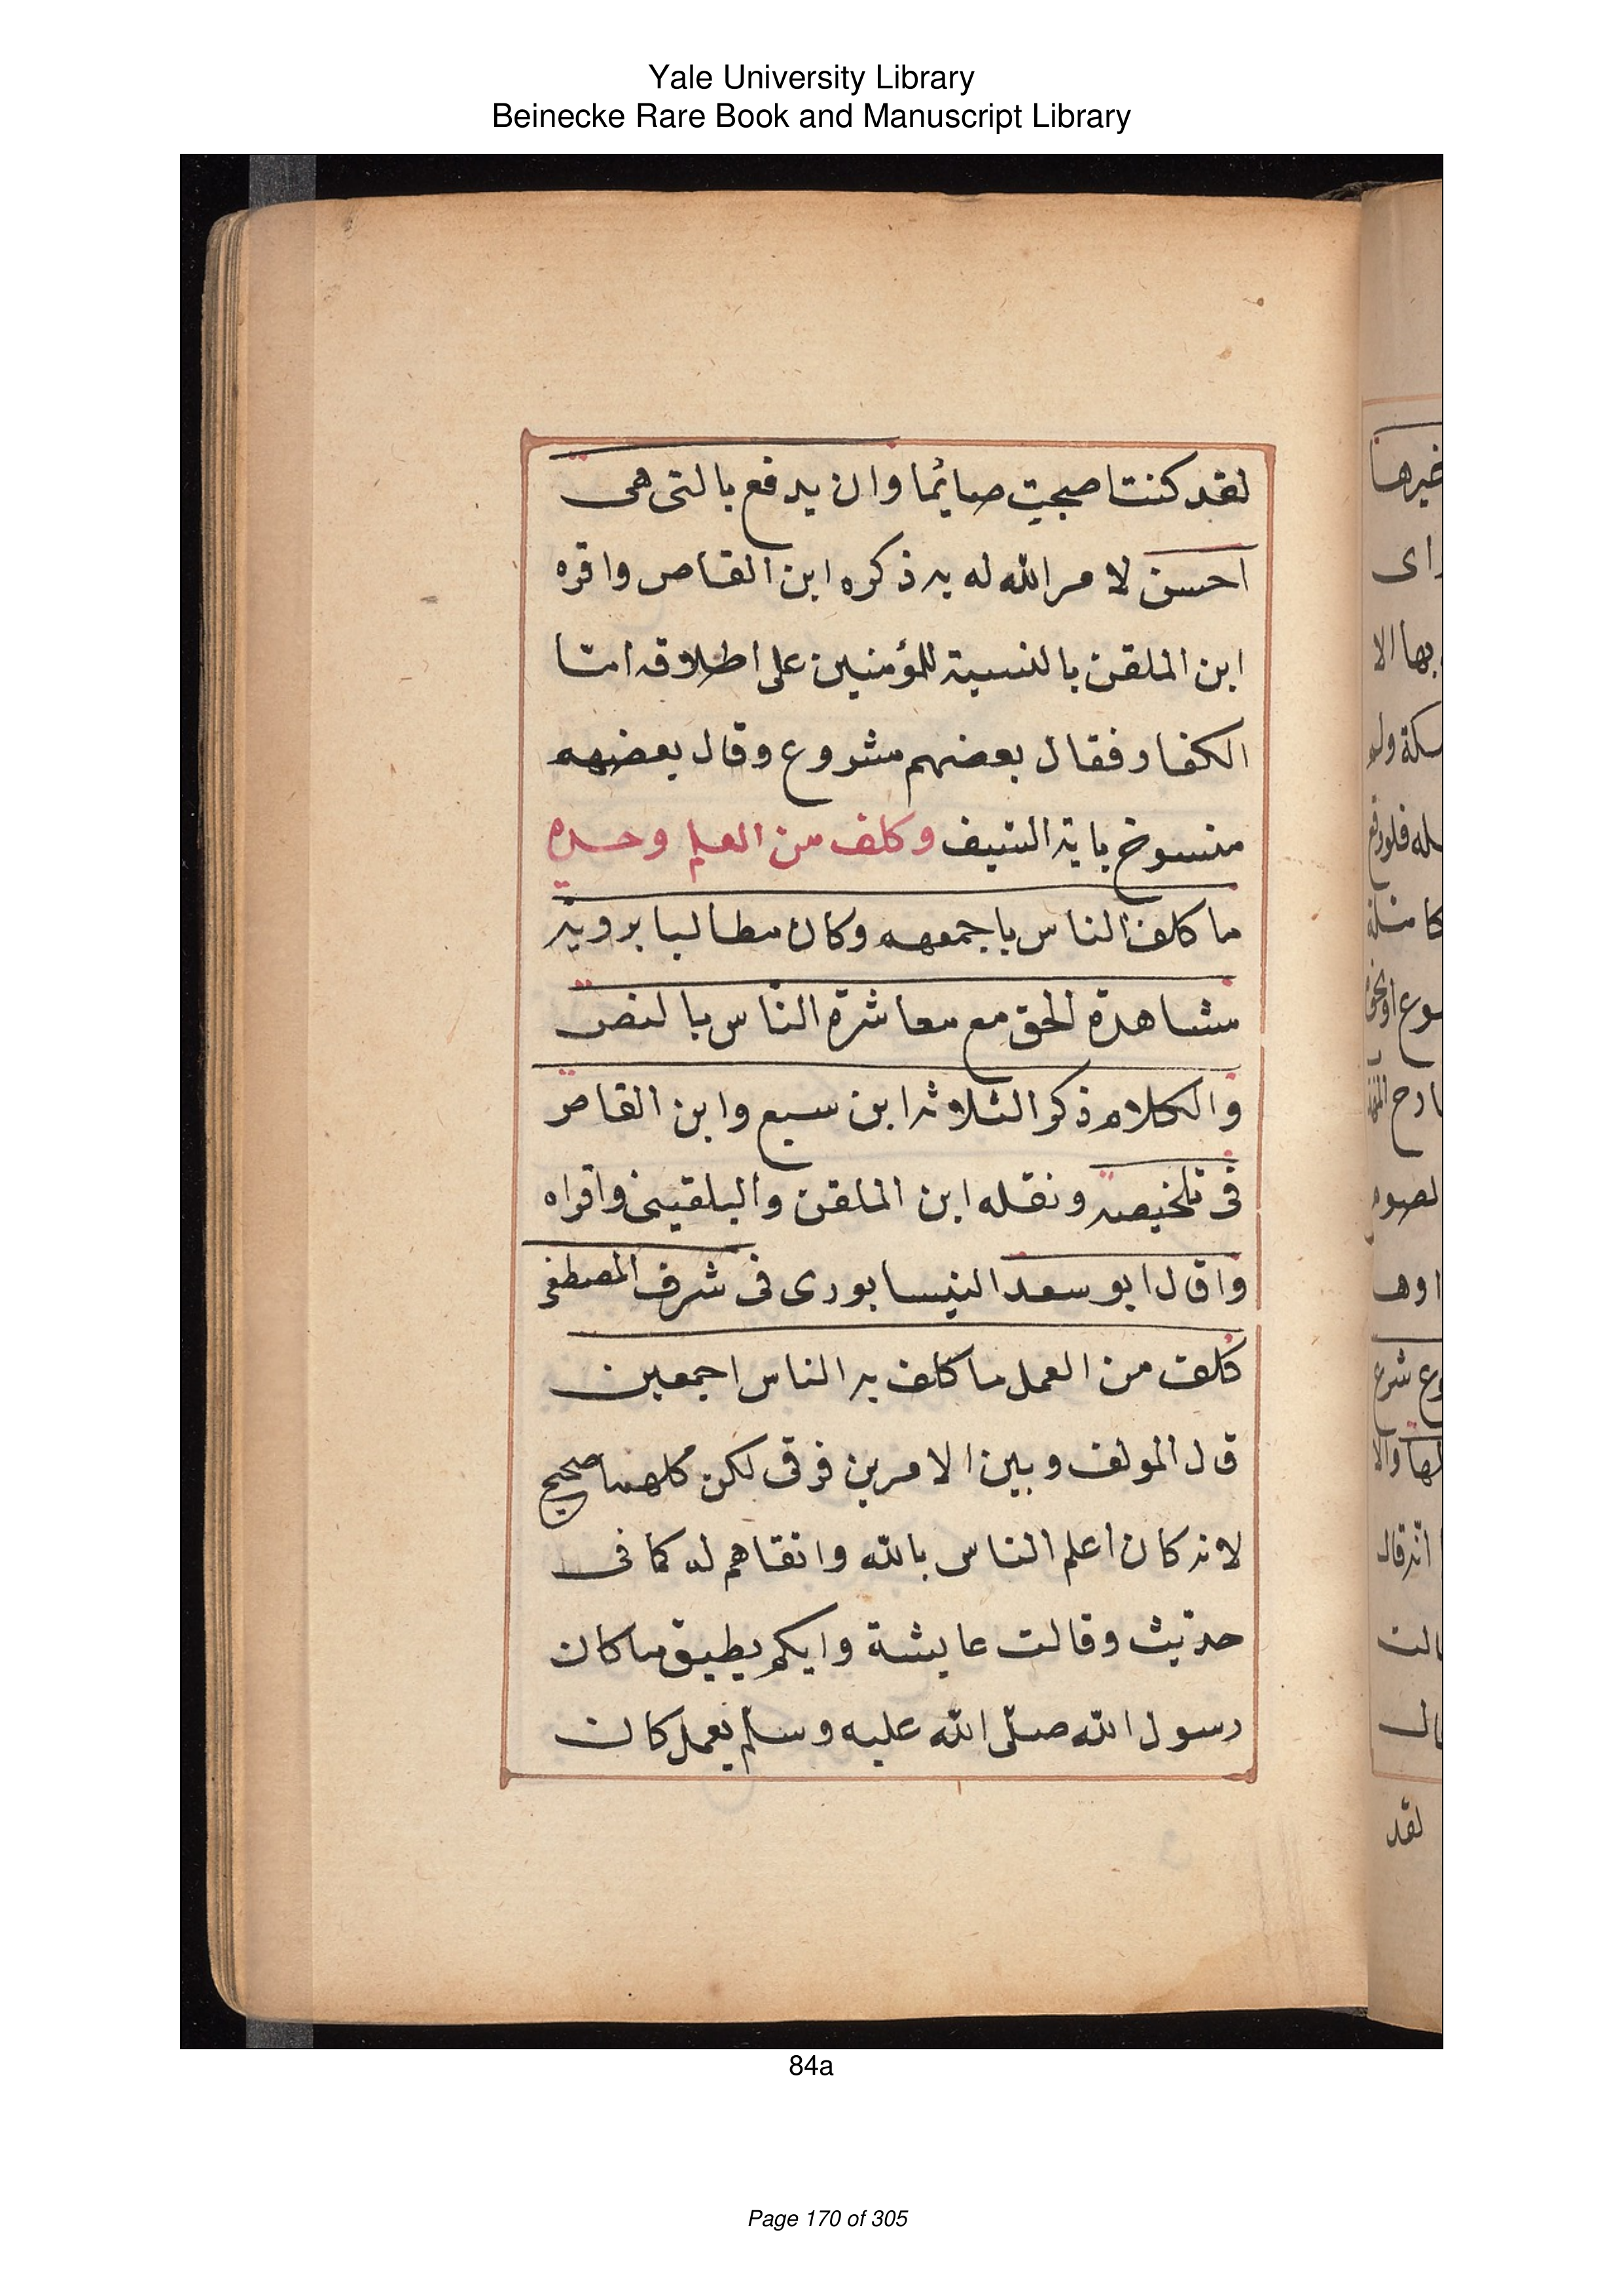 Yale University Library
Beinecke Rare Book and Manuscript Library
لقد كنت اصبحت صائما وان يدفع بالتى هى
احسن لامر الله له به ذكره ابن القاص واقره
ابن الملقن بالنسبة للمؤمنين على اطلاقه امّا
الكفار فقال بعضهم مشروع وقال بعضهم
منسوخ باية السّيف وكلف من العلم وحده
ما كلف الناس باجمعهم وكان مطالبا بروية
مشاهدة الحق مع معاشرة النّاس بالنفس
والكلام ذكر الثلاثة ابن سبع وابن القاص
فى تلخيصه ونقله ابن الملقن والبلقينى واقراه
واقال ابو سعد النيسابورى فى شرف المصطفى
كُلف من العمل ما كلف به الناس اجمعين
قال المولف وبين الامرين فرق لكن كلاهما صحيح
لانه كان اعلم الناس بالله واتقاهم له كما فى
حديث وقالت عايشة وايكم يطيق ما كان
رسول الله صلّى الله عليه وسلم يعمل كان
لقد
84a
Page 170 of 305